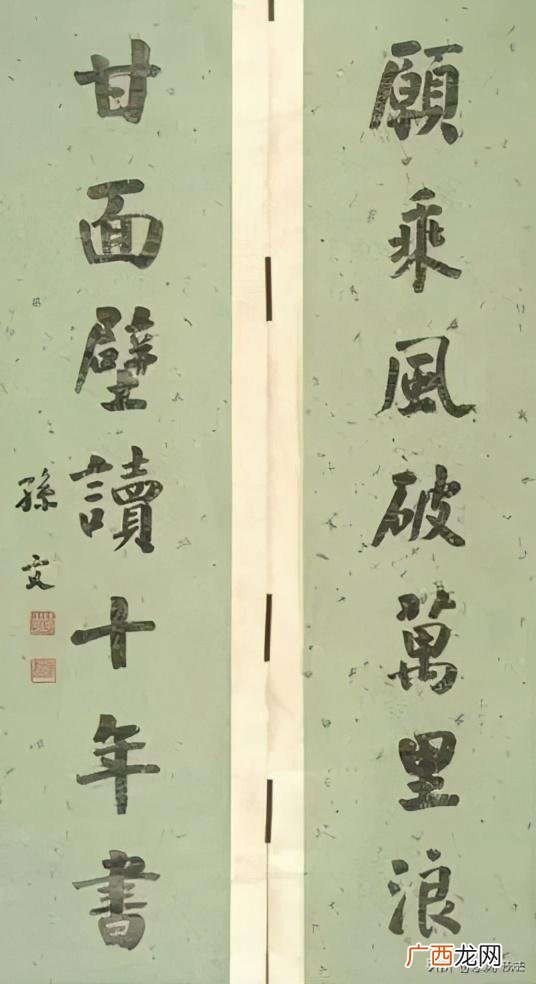 願乘風破萬里浪
甘面壁讀十年書
孫文
广西龙网